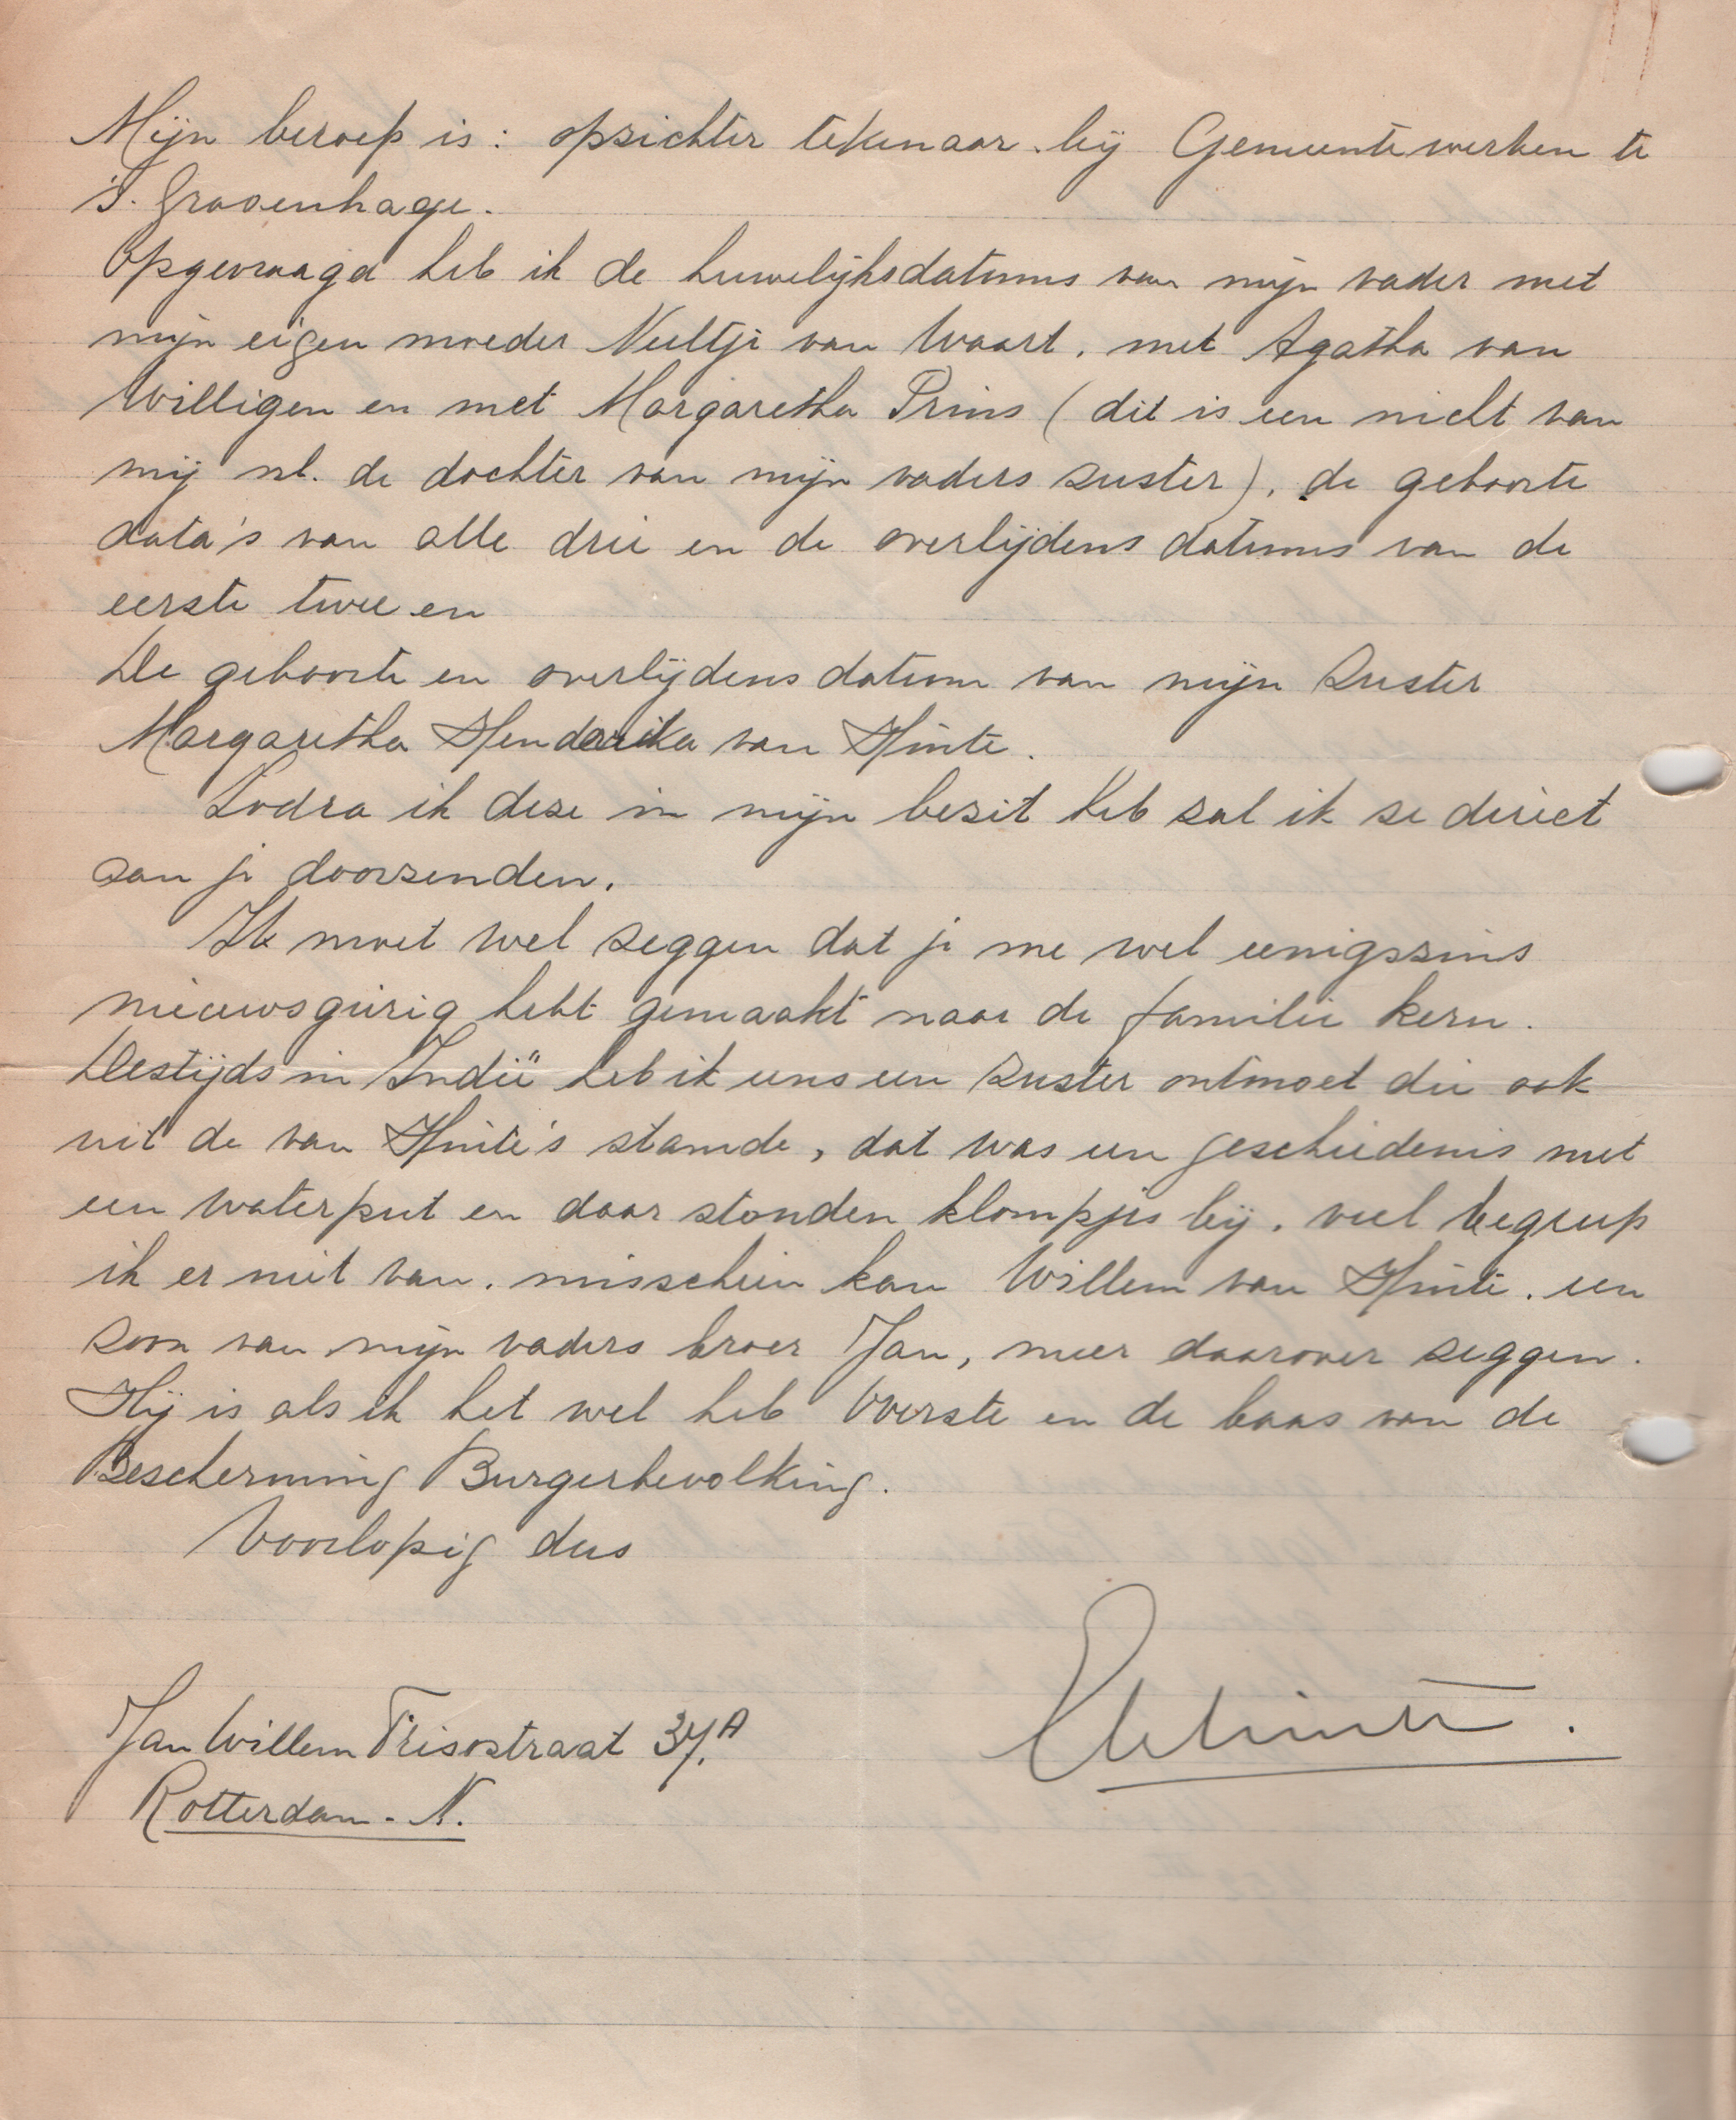 Mijn beroep is: opzichter tekenaar bij Gemeentewerken te
's. Gravenhage.
Opgevraagd heb ik de huwelijksdatums van mijn vader met
mijn eigen moeder Neeltje van Waart, met Agatha van
Willigen en met Margaretha Prins (dit is een nicht van
mij nl. de dochter van mijn vaders zuster), de geboorte
data's van alle drie en de overlijdens datums van de
eerste twee en
De geboorte en overlijdens datum van mijn Zuster
Margaretha Henderika van Hinte.
Zodra ik deze in mijn bezit heb zal ik ze direct
aan je doorzenden.
Ik moet wel zeggen dat je me wel eenigszins
nieuwsgierig hebt gemaakt naar de familie kern.
Destijds in Indië heb ik eens een zuster ontmoet die ook
uit de van Hinte's stamde, dat was een geschiedenis met
een waterput en daar stonden klompjes bij, veel begreep
ik er niet van, misschien kan Willem van Hinte, een
zoon van mijn vaders broer Jan, meer daarover zeggen.
Hij is als ik het wel heb Overste en de baas van de
Bescherming Burgerbevolking.
Voorlopig dus
Jan Willem Frisostraat 37A
Rotterdam - N.